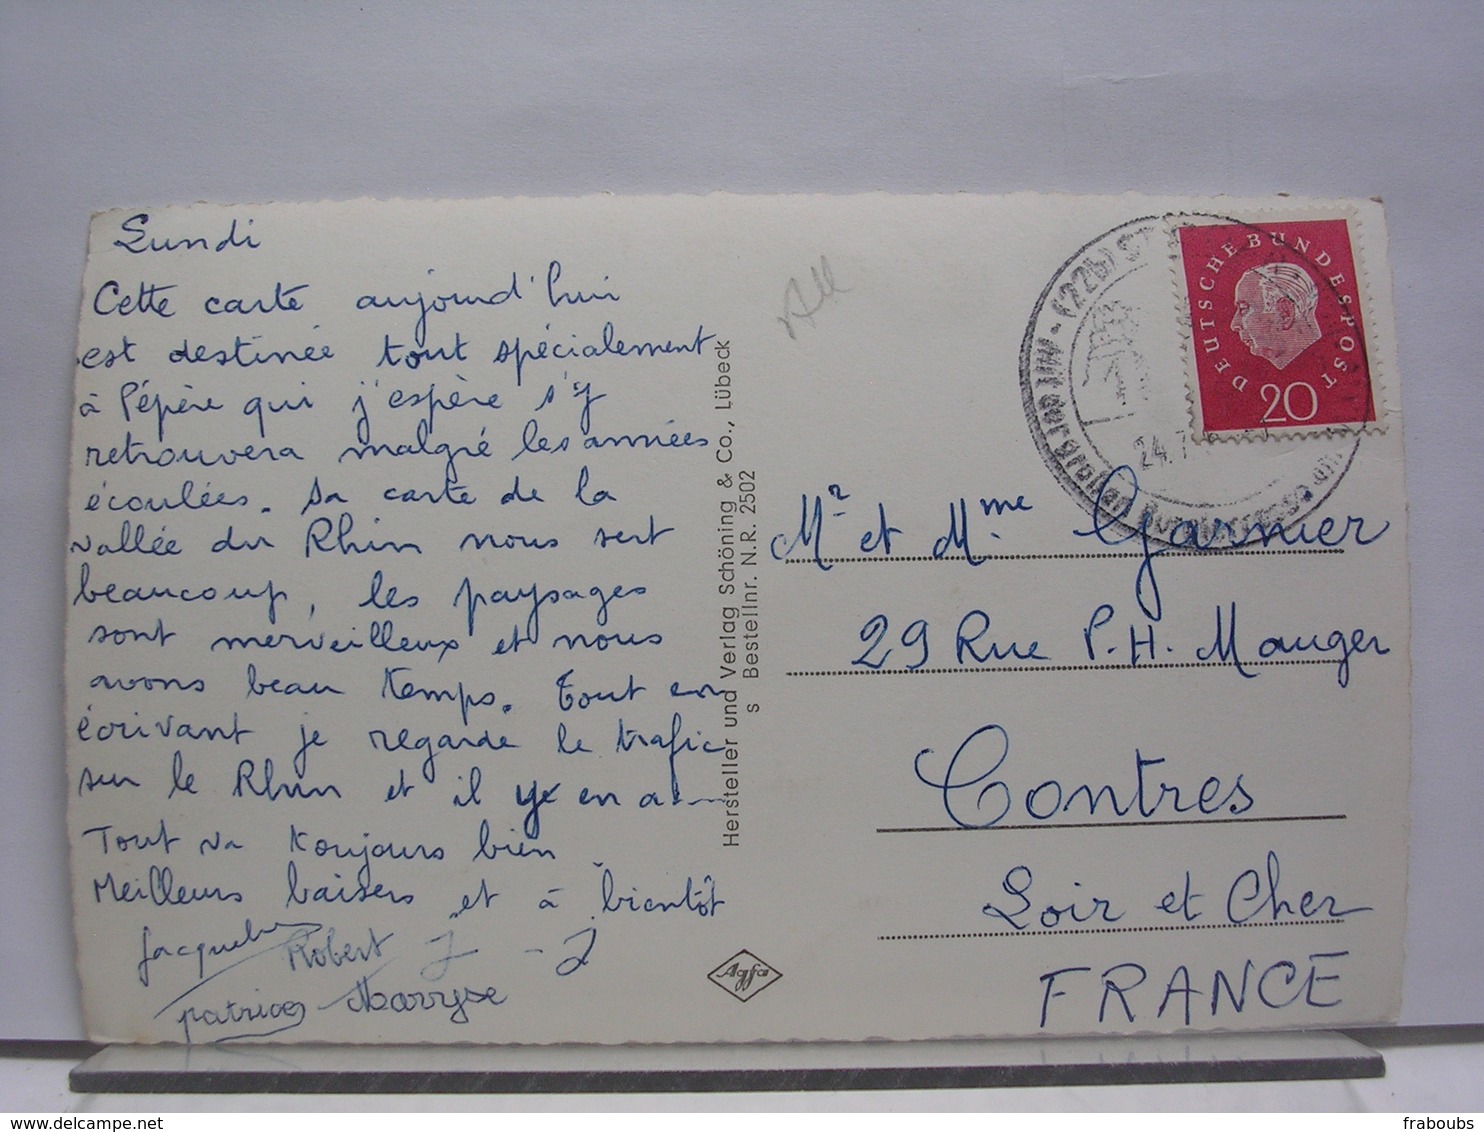 Lundi
Cette carte aujourd'hui
est destinée tout spécialement
à Pépère qui j'espère s'y
retrouvera malgré les années
écoulées. Sa carte de la
vallée du Rhin nous sert
beaucoup, les paysages
sont merveilleux et nous
avons beau temps. Tout en
écrivant je regarde le trafic
sur le Rhin et il y en a
Tout va toujours bien
Meilleurs baisers et à bientôt
Robert J - J
Patrice Maryse
Hersteller und Verlag Schöning & Co., Lübeck
s Bestellnr. N.R. 2502
Agfa
DEUTSCHE BUNDESPOST
20
(22b) ST
24.7.
Mr et Mme Garnier
29 Rue P.H. Mauger
Contres
Loir et Cher
FRANCE
fraboubs